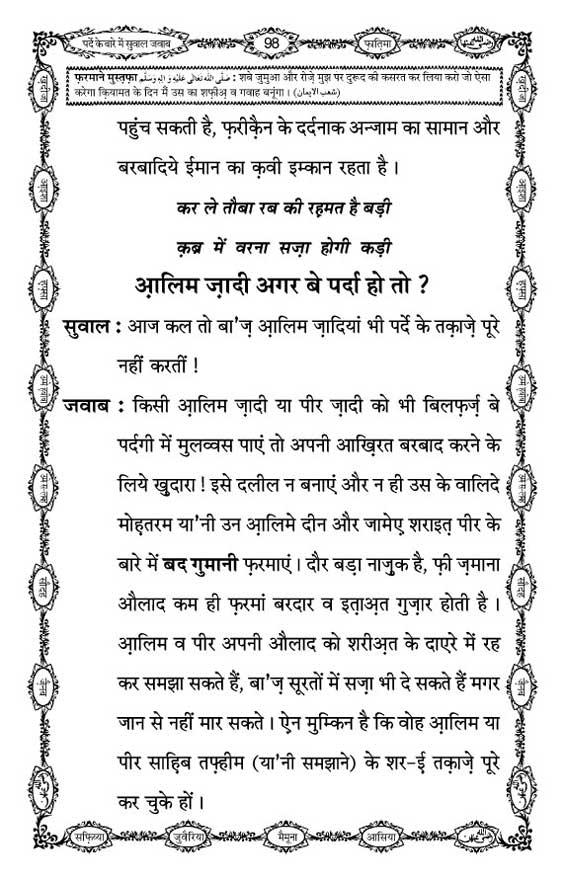 पर्दे के बारे में सुवाल जवाब
98
फ़ातिमा
फ़रमाने मुस्तफ़ा صَلَّى اللّٰهُ تَعَالٰى عَلَيْهِ وَاٰلِهٖ وَسَلَّم : शबे जुमुआ और रोज़े मुझ पर दुरूद की कसरत कर लिया करो जो ऐसा
करेगा क़ियामत के दिन मैं उस का शफ़ीअ़ व गवाह बनूंगा। (شعب الایمان)
पहुंच सकती है, फ़रीक़ैन के दर्दनाक अन्जाम का सामान और
बरबादिये ईमान का क़वी इम्कान रहता है।
कर ले तौबा रब की रहमत है बड़ी
क़ब्र में वरना सज़ा होगी कड़ी
आ़लिम ज़ादी अगर बे पर्दा हो तो ?
सुवाल : आज कल तो बा'ज़ आ़लिम ज़ादियां भी पर्दे के तक़ाज़े पूरे
नहीं करतीं !
जवाब : किसी आ़लिम ज़ादी या पीर ज़ादी को भी बिलफ़र्ज़ बे
पर्दगी में मुलव्वस पाएं तो अपनी आख़िरत बरबाद करने के
लिये खुदारा ! इसे दलील न बनाएं और न ही उस के वालिदे
मोह़तरम या'नी उन आ़लिमे दीन और जामेए़ शराइत़ पीर के
बारे में बद गुमानी फ़रमाएं। दौर बड़ा नाज़ुक है, फ़ी ज़माना
औलाद कम ही फ़रमां बरदार व इत़ाअ़त गुज़ार होती है।
आ़लिम व पीर अपनी औलाद को शरीअ़त के दाएरे में रह
कर समझा सकते हैं, बा'ज़ सूरतों में सज़ा भी दे सकते हैं मगर
जान से नहीं मार सकते। ऐन मुम्किन है कि वोह आ़लिम या
पीर साह़िब तफ़्हीम (या'नी समझाने) के शर-ई तक़ाज़े पूरे
कर चुके हों।
सफ़िय्या
जुवैरिया
मैमूना
आसिया